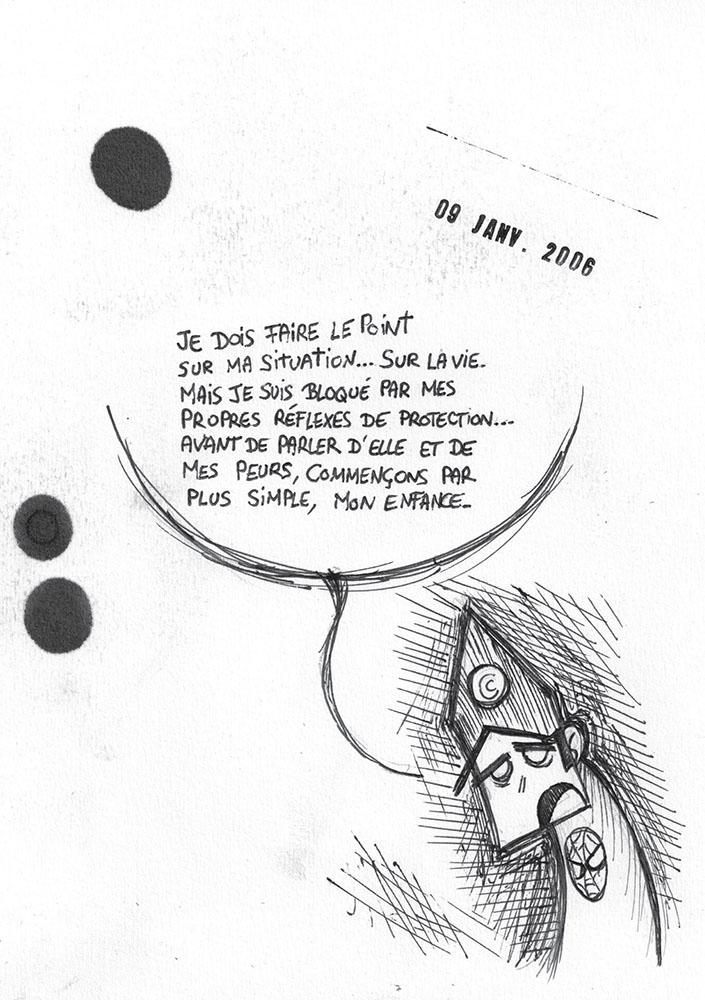 09 JANV. 2006
JE DOIS FAIRE LE POINT
SUR MA SITUATION... SUR LA VIE.
MAIS JE SUIS BLOQUÉ PAR MES
PROPRES RÉFLEXES DE PROTECTION...
AVANT DE PARLER D'ELLE ET DE
MES PEURS, COMMENÇONS PAR
PLUS SIMPLE, MON ENFANCE.
C